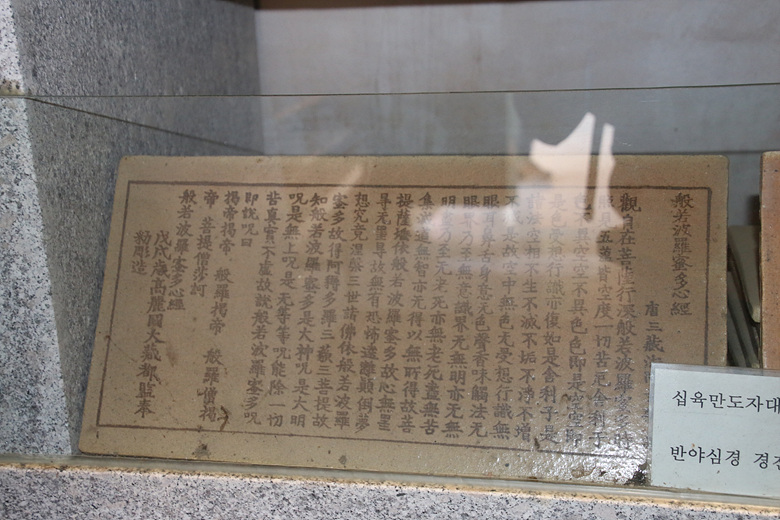 般若波羅蜜多心經
唐三藏法
觀自在菩薩行深般若波羅蜜多時
照見五蘊皆空度一切苦厄舍利子
色不異空空不異色色即是空空即
是色受想行識亦復如是舍利子是
諸法空相不生不滅不垢不淨不增
不減是故空中無色无受想行識無
眼耳鼻舌身意无色聲香味觸法无
眼界乃至無意識界无無明亦无無
明盡乃至无老死亦無老死盡無苦
集滅道無智亦无得以無所得故菩
提薩埵依般若波羅蜜多故心無罣
㝵无罣㝵故無有恐怖遠離顚倒夢
想究竟涅槃三世諸佛依般若波羅
蜜多故得阿耨多羅三藐三菩提故
知般若波羅蜜多是大神呪是大明
呪是無上呪是无等等呪能除一切
苦真實不虛故說般若波羅蜜多呪
即說呪曰
揭帝揭帝 般羅揭帝 般羅僧揭
帝 菩提僧莎訶
般若波羅蜜多心經
戊戌歲高麗國大藏都監奉
勅彫造
십육만도자대
반야심경 경